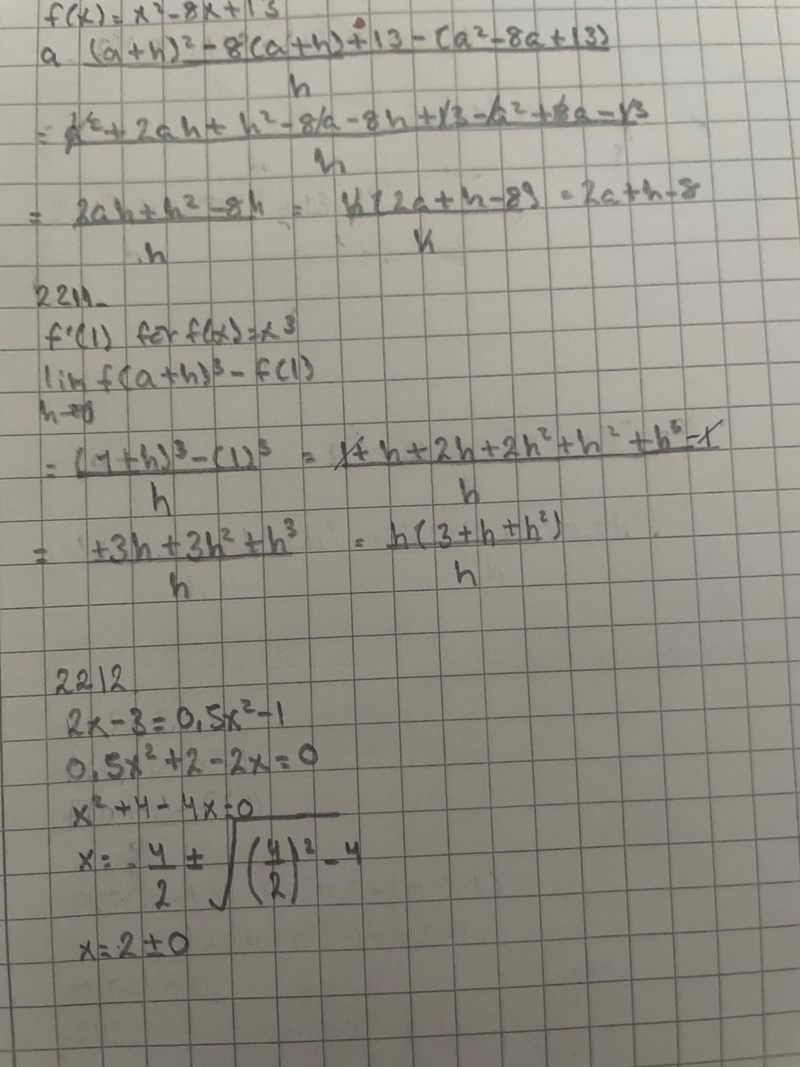 f(x) = x² - 8x + 13
a ((a+h)² - 8(a+h) + 13 - (a² - 8a + 13))/h
= (a² + 2ah + h² - 8a - 8h + 13 - a² + 8a - 13)/h
= (2ah + h² - 8h)/h = h(2a + h - 8)/h = 2a + h - 8
2211
f'(1) for f(x) = x³
lim f(a+h)³ - f(1)
h→0
= ((1+h)³ - (1)³)/h = (1 + h + 2h + 2h² + h² + h³ - 1)/h
= (+3h + 3h² + h³)/h = h(3 + h + h²)/h
2212
2x - 3 = 0,5x² - 1
0,5x² + 2 - 2x = 0
x² + 4 - 4x = 0
x = 4/2 ± √((4/2)² - 4)
x = 2 ± 0